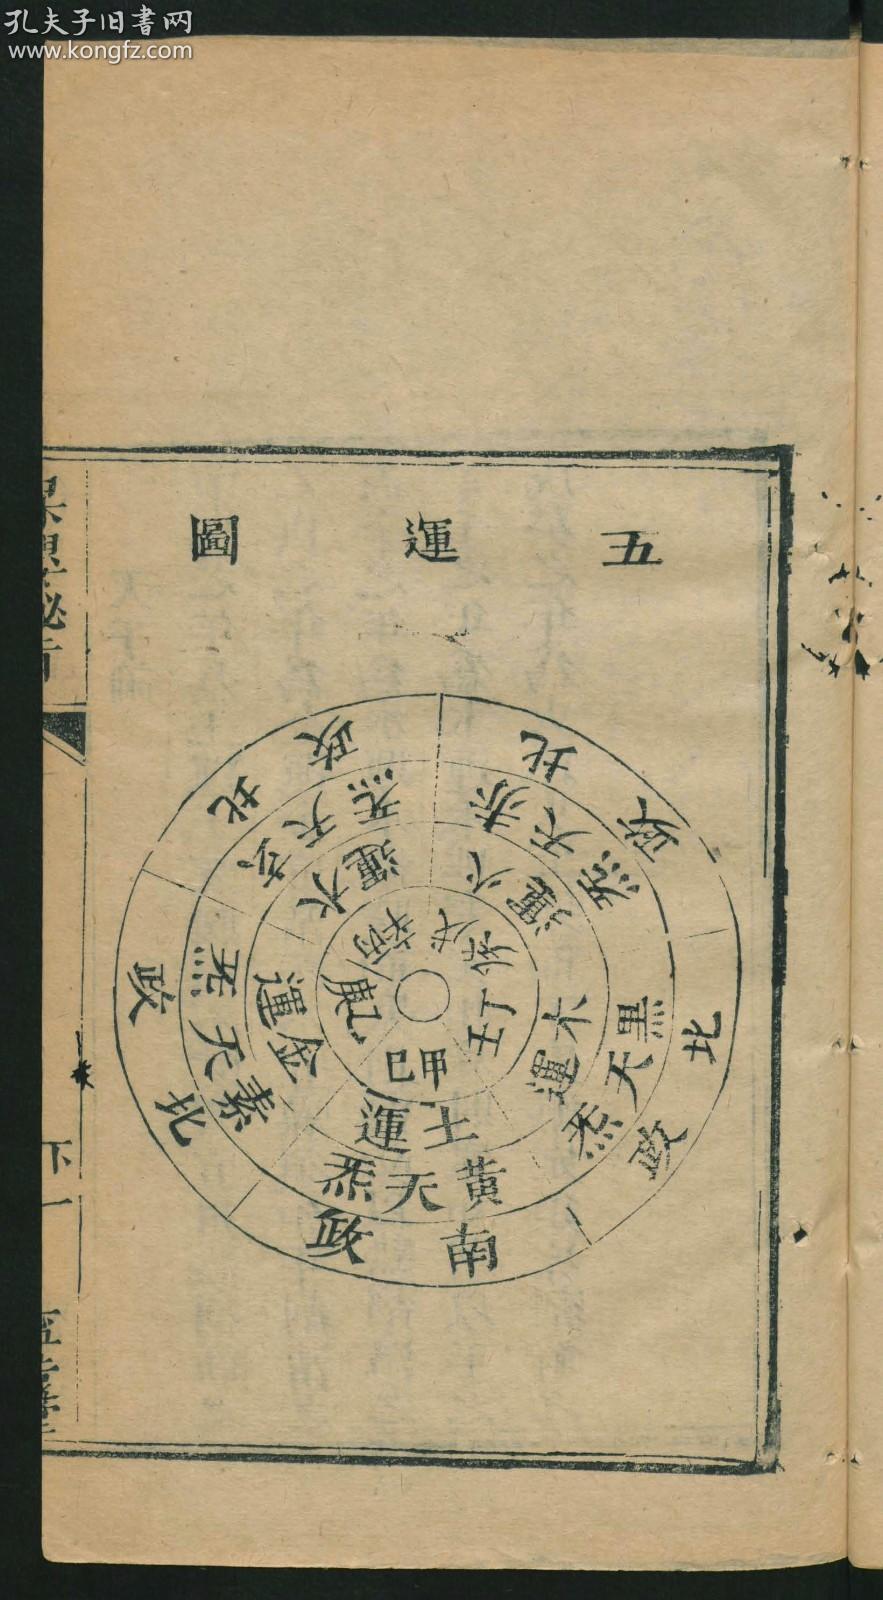 孔夫子旧書网
www.kongfz.com
五運圖
甲巳
土運
黃天炁
南政
金運
素天炁
北政
水運
天炁
北政
火運
赤天炁
北政
丁壬
木運
黑天炁
北政
下一